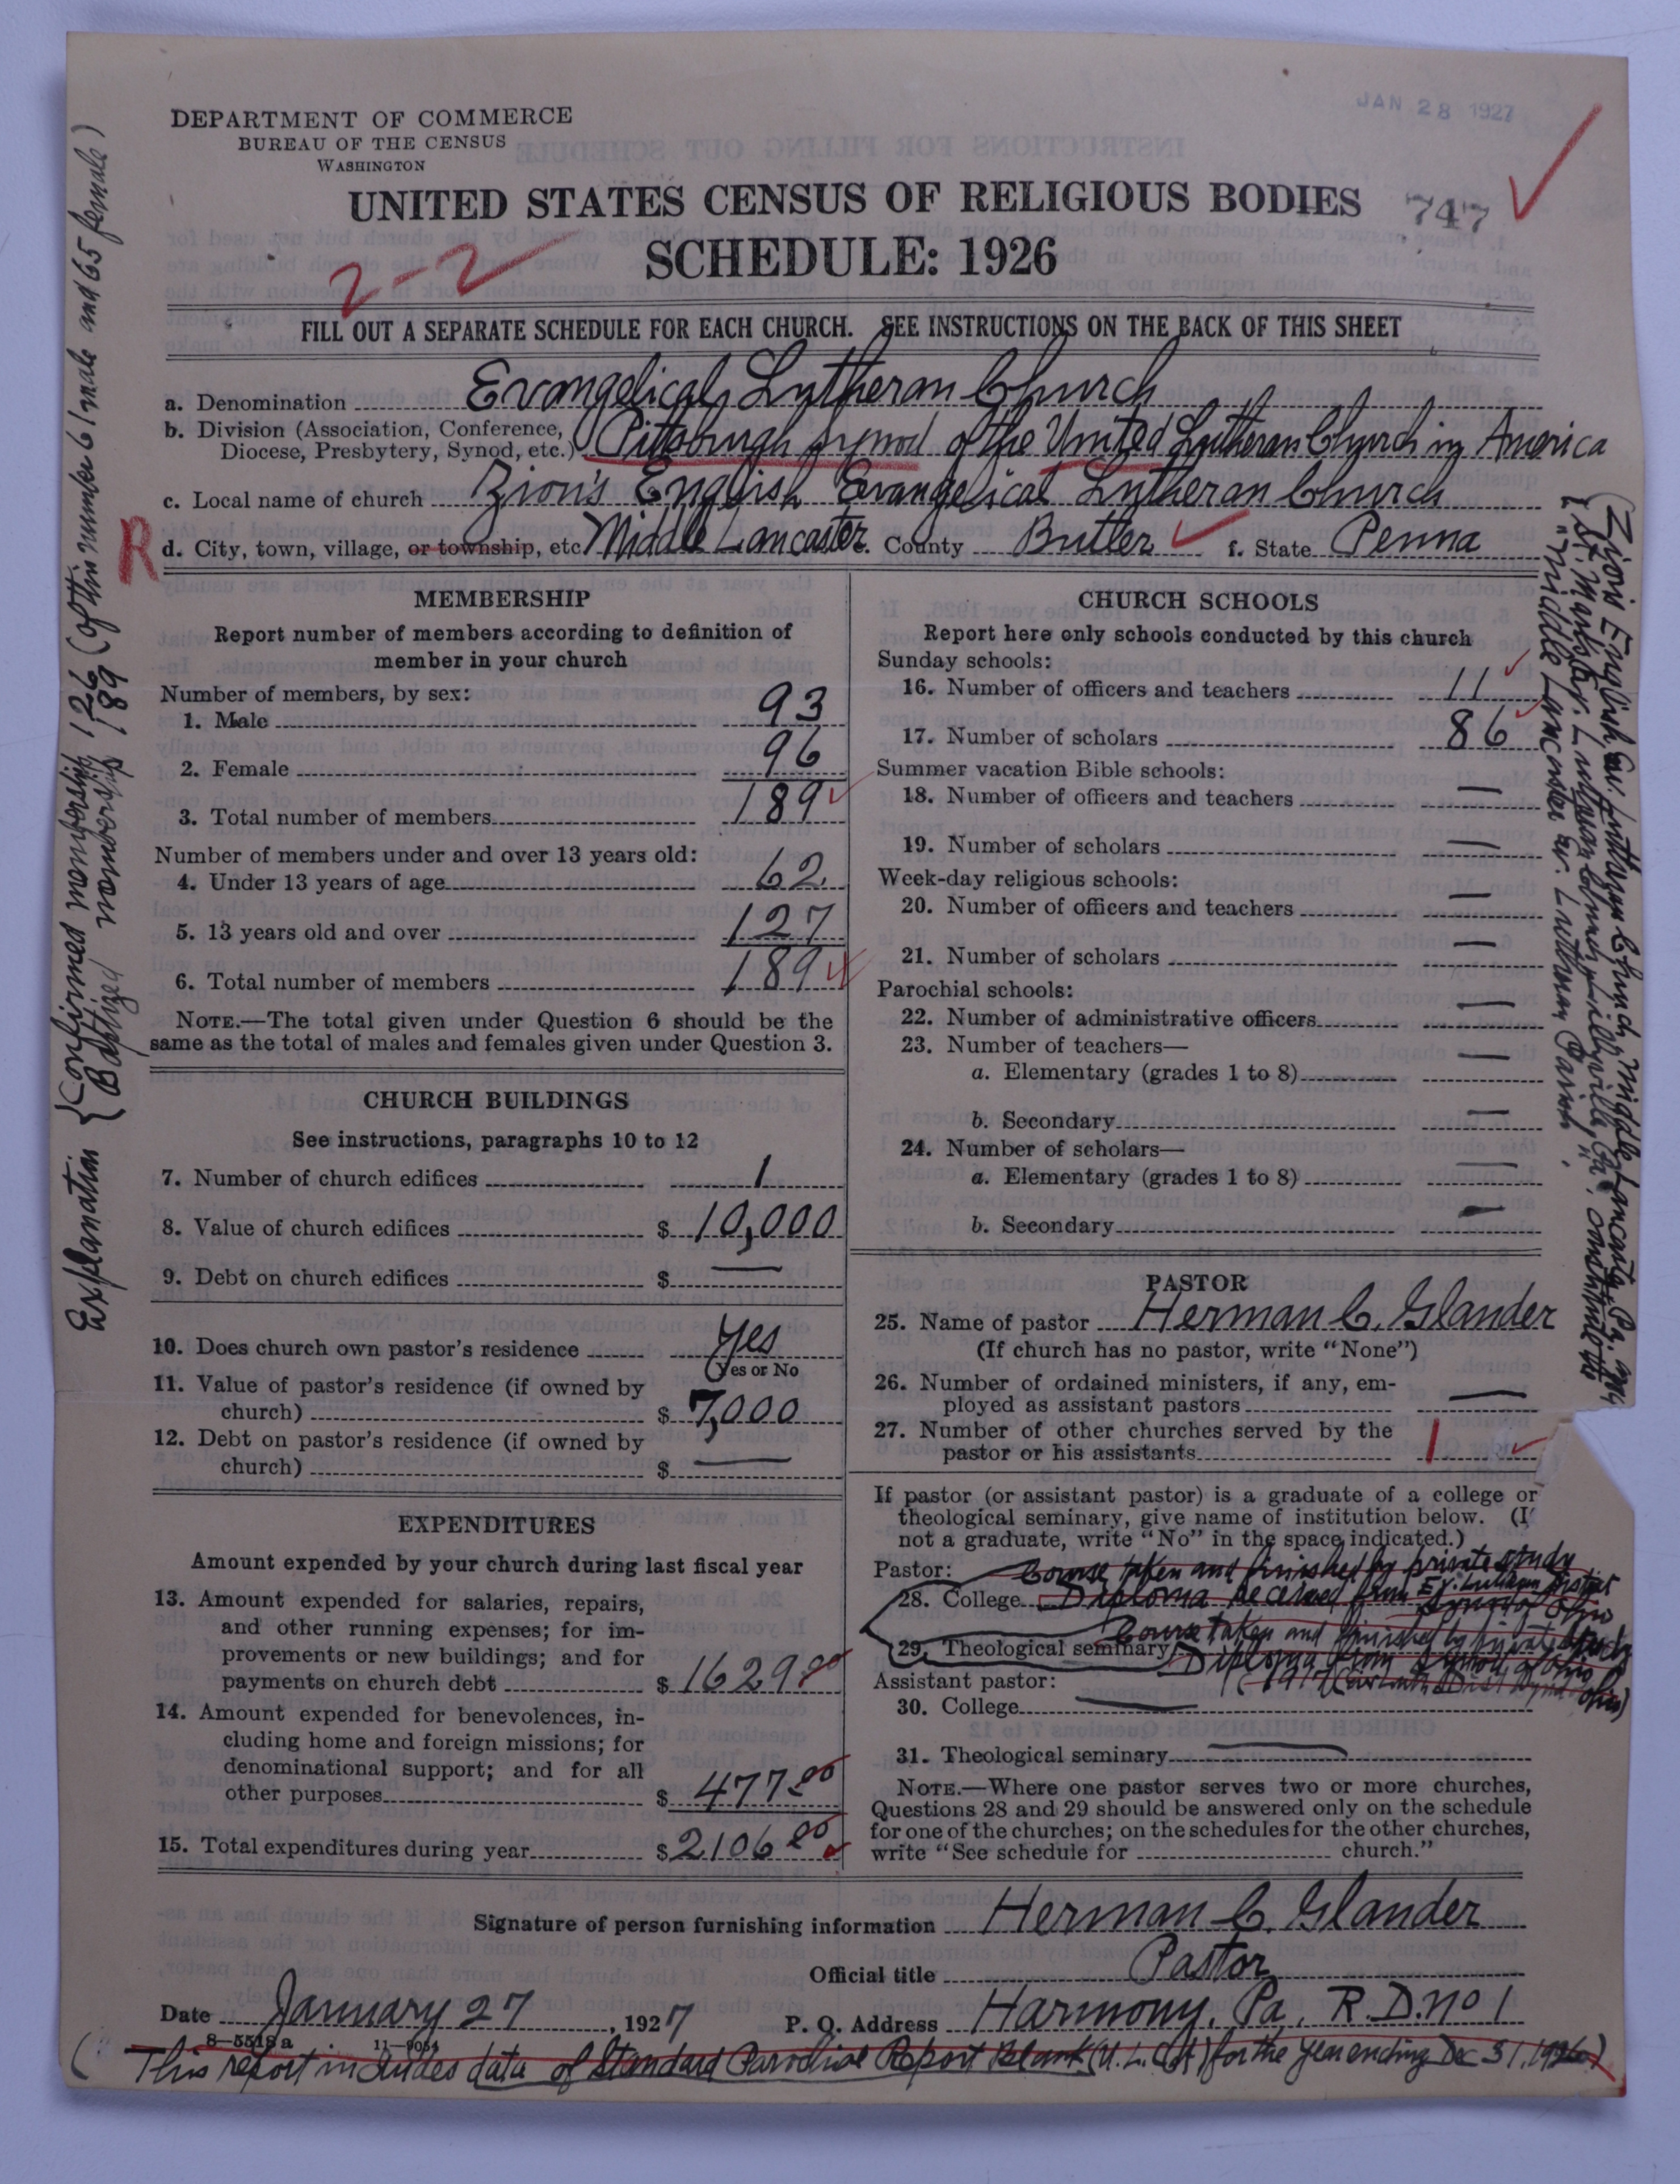 JAN 28 1927
DEPARTMENT OF COMMERCE
BUREAU OF THE CENSUS
WASHINGTON
UNITED STATES CENSUS OF RELIGIOUS BODIES
747
SCHEDULE: 1926
2-2
FILL OUT A SEPARATE SCHEDULE FOR EACH CHURCH. SEE INSTRUCTIONS ON THE BACK OF THIS SHEET
a. Denomination Evangelical Lutheran Church
b. Division (Association, Conference,
Diocese, Presbytery, Synod, etc.) Pittsburgh Synod of the United Lutheran Church in America
c. Local name of church Zion's English Evangelical Lutheran Church
R
d. City, town, village, or township, etc. Middle Lancaster e. County Butler f. State Penna
MEMBERSHIP
Report number of members according to definition of
member in your church
Number of members, by sex:
1. Male 93
2. Female 96
3. Total number of members 189
Number of members under and over 13 years old:
4. Under 13 years of age 62
5. 13 years old and over 127
6. Total number of members 189
NOTE.—The total given under Question 6 should be the
same as the total of males and females given under Question 3.
CHURCH BUILDINGS
See instructions, paragraphs 10 to 12
7. Number of church edifices 1
8. Value of church edifices $ 10,000
9. Debt on church edifices $ —
10. Does church own pastor's residence Yes
(Yes or No
11. Value of pastor's residence (if owned by
church) $ 7,000
12. Debt on pastor's residence (if owned by
church) $ —
EXPENDITURES
Amount expended by your church during last fiscal year
13. Amount expended for salaries, repairs,
and other running expenses; for im-
provements or new buildings; and for
payments on church debt $ 1629.00
14. Amount expended for benevolences, in-
cluding home and foreign missions; for
denominational support; and for all
other purposes $ 477.00
15. Total expenditures during year $ 2106.00
CHURCH SCHOOLS
Report here only schools conducted by this church
Sunday schools:
16. Number of officers and teachers 11
17. Number of scholars 86
Summer vacation Bible schools:
18. Number of officers and teachers —
19. Number of scholars —
Week-day religious schools:
20. Number of officers and teachers —
21. Number of scholars —
Parochial schools:
22. Number of administrative officers —
23. Number of teachers—
a. Elementary (grades 1 to 8) —
b. Secondary —
24. Number of scholars—
a. Elementary (grades 1 to 8) —
b. Secondary —
PASTOR
25. Name of pastor Herman C. Glander
(If church has no pastor, write "None")
26. Number of ordained ministers, if any, em-
ployed as assistant pastors —
27. Number of other churches served by the
pastor or his assistants 1
If pastor (or assistant pastor) is a graduate of a college or
theological seminary, give name of institution below. (I
not a graduate, write "No" in the space indicated.)
Pastor: Course taken and finished by private study
28. College Diploma received from Ev. Lutheran District
Synod of Ohio
Course taken and finished by private study
29. Theological seminary Diploma from Synod of Ohio
1917
Assistant pastor:
30. College —
31. Theological seminary —
NOTE.—Where one pastor serves two or more churches,
Questions 28 and 29 should be answered only on the schedule
for one of the churches; on the schedules for the other churches,
write "See schedule for church."
Signature of person furnishing information Herman C. Glander
Official title Pastor
Date January 27, 1927 P. O. Address Harmony, Pa, R.D. No 1
8—5518 a 11—9054
(This report includes data of Standard Parochial Report Blank (U.L.C.A) for the year ending Dec 31, 1926)
Explanation { Confirmed membership 126 (of this number 61 male and 65 female)
Baptized membership 189
(Zion's English Ev. Lutheran Church, Middle Lancaster, Pa. and
St. Mark's Ev. Lutheran Church, Pa., constitute the
"Middle Lancaster Ev. Lutheran Parish".